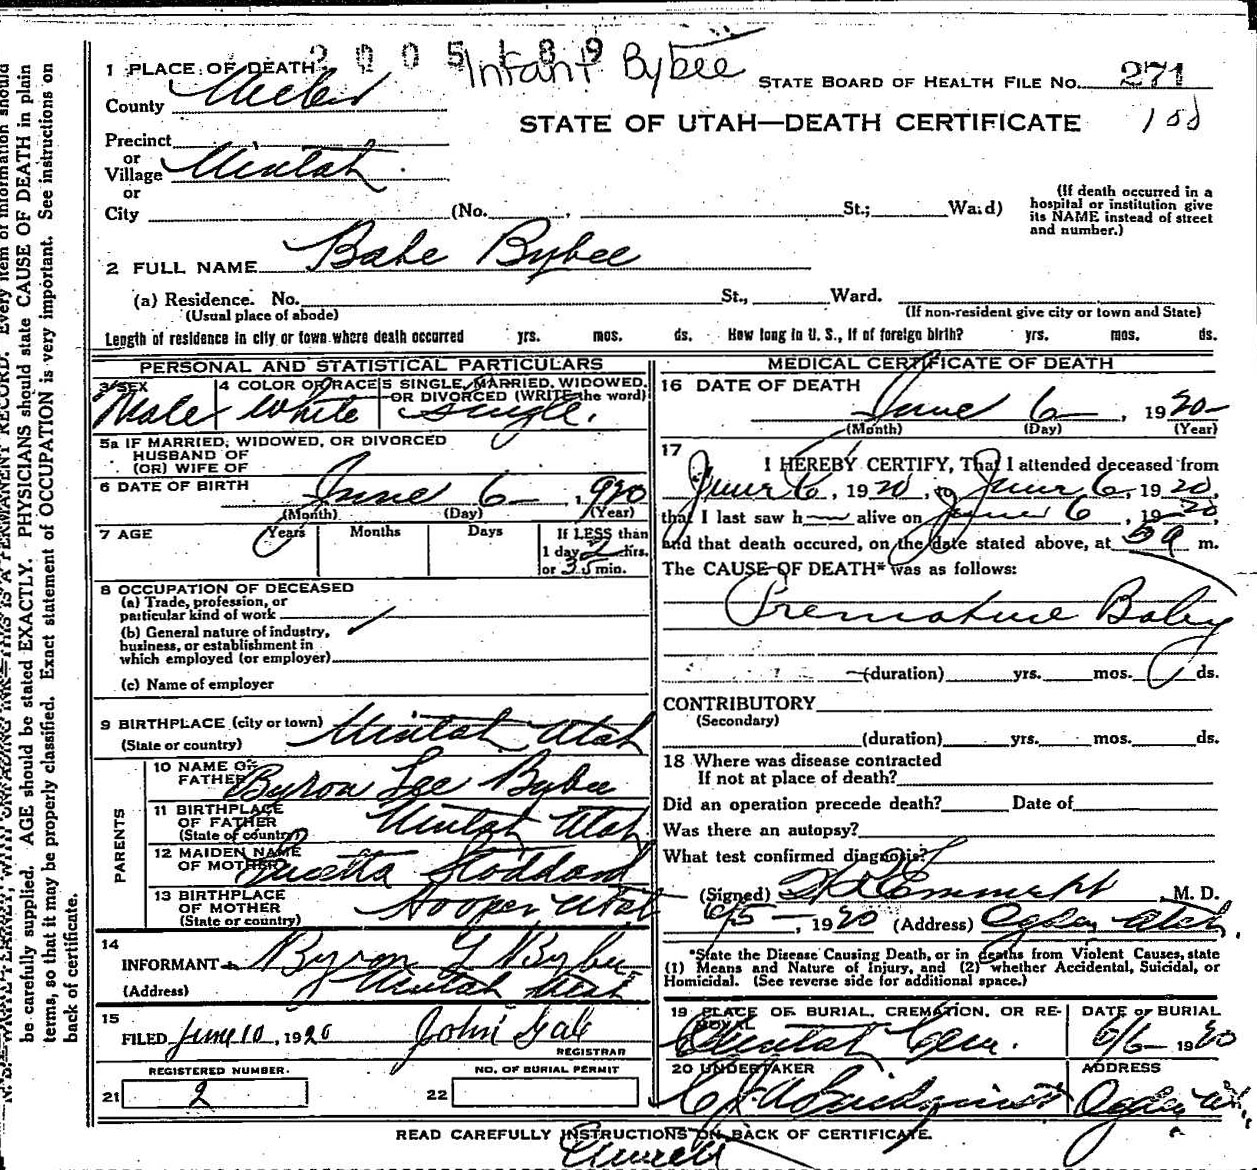 2005189
Infant Bybee
1 PLACE OF DEATH
STATE BOARD OF HEALTH FILE No. 271
County Weber
STATE OF UTAH—DEATH CERTIFICATE
Precinct
or
Village Uintah
or
City (No. , St.; Ward)
(If death occurred in a hospital or institution give its NAME instead of street and number.)
2 FULL NAME Babe Bybee
(a) Residence. No. St., Ward.
(Usual place of abode) (If non-resident give city or town and State)
Length of residence in city or town where death occurred yrs. mos. ds. How long in U. S., if of foreign birth? yrs. mos. ds.
PERSONAL AND STATISTICAL PARTICULARS
3 SEX Male
4 COLOR OR RACE White
5 SINGLE, MARRIED, WIDOWED, OR DIVORCED (WRITE the word) Single.
5a IF MARRIED, WIDOWED, OR DIVORCED
HUSBAND OF
(OR) WIFE OF
6 DATE OF BIRTH June 6 1920
(Month) (Day) (Year)
7 AGE Years Months Days If LESS than
0
1 day 2 hrs.
or 35 min.
8 OCCUPATION OF DECEASED
(a) Trade, profession, or
particular kind of work
(b) General nature of industry,
business, or establishment in
which employed (or employer)
(c) Name of employer
9 BIRTHPLACE (city or town) Uintah Utah
(State or country)
PARENTS
10 NAME OF FATHER Byron Lee Bybee
11 BIRTHPLACE OF FATHER Uintah Utah
(State of country)
12 MAIDEN NAME OF MOTHER Luzetta Stoddard
13 BIRTHPLACE OF MOTHER Hooper Utah
(State or country)
14
INFORMANT Byron L Bybee
(Address) Uintah Utah
15
FILED June 10, 1920 John Gale
REGISTRAR
REGISTERED NUMBER. NO. OF BURIAL PERMIT
21 2 22
MEDICAL CERTIFICATE OF DEATH
16 DATE OF DEATH
June 6, 1920
(Month) (Day) (Year)
17
I HEREBY CERTIFY, That I attended deceased from
June 6, 1920, to June 6, 1920,
that I last saw h alive on June 6, 1920,
and that death occured, on the date stated above, at 5 a m.
The CAUSE OF DEATH* was as follows:
Premature Baby
(duration) yrs. mos. 0 ds.
CONTRIBUTORY
(Secondary)
(duration) yrs. mos. ds.
18 Where was disease contracted
If not at place of death?
Did an operation precede death? Date of
Was there an autopsy?
What test confirmed diagnosis?
(Signed) M. D.
1920 (Address) Ogden Utah.
*State the Disease Causing Death, or in deaths from Violent Causes, state
(1) Means and Nature of Injury, and (2) whether Accidental, Suicidal, or
Homicidal. (See reverse side for additional space.)
19 PLACE OF BURIAL, CREMATION, OR REMOVAL DATE OF BURIAL
Uintah Cem. 6/6 1920
20 UNDERTAKER ADDRESS
Ogden Ut.
READ CAREFULLY INSTRUCTIONS ON BACK OF CERTIFICATE.
be carefully supplied. AGE should be stated EXACTLY. PHYSICIANS should state CAUSE OF DEATH in plain
terms, so that it may be properly classified. Exact statement of OCCUPATION is very important. See instructions on
back of certificate.